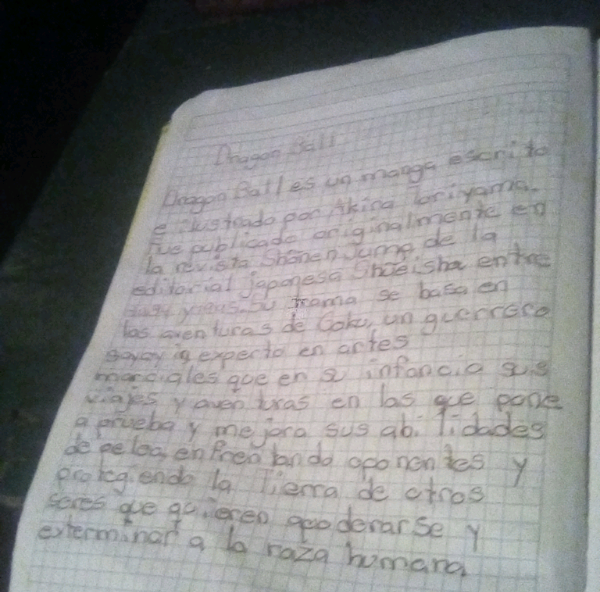 Dragon Ball
Dragon Ball es un manga escrito
e ilustrado por Akira toriyama.
Fue publicado originalmente en
la revista Shonen Jump de la
editorial japonesa Shueisha entre
Su trama se basa en
las aventuras de Goku, un guerrero
experto en artes
marciales que en su infancia sus
viajes y aventuras en las que pone
a prueba y mejora sus abilidades
de pelea, enfrentando oponentes y
protegiendo la Tierra de otros
seres que quieren apoderarse y
exterminar a la raza humana